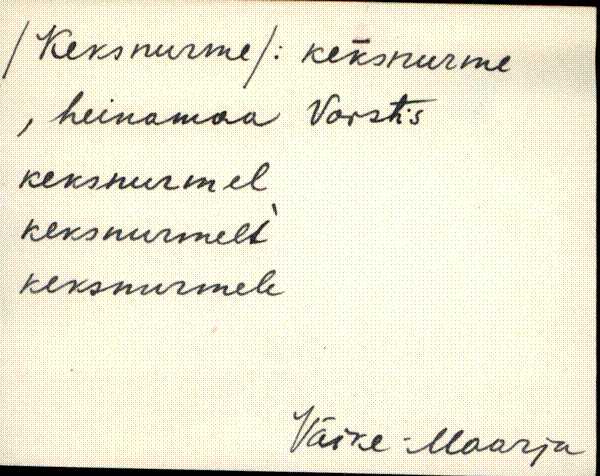 /Keksnurme/: kek̄snurme
, heinamaa Vorstis
keksnurmel
keksnurmelt̀
keksnurmele
Väike-Maarja